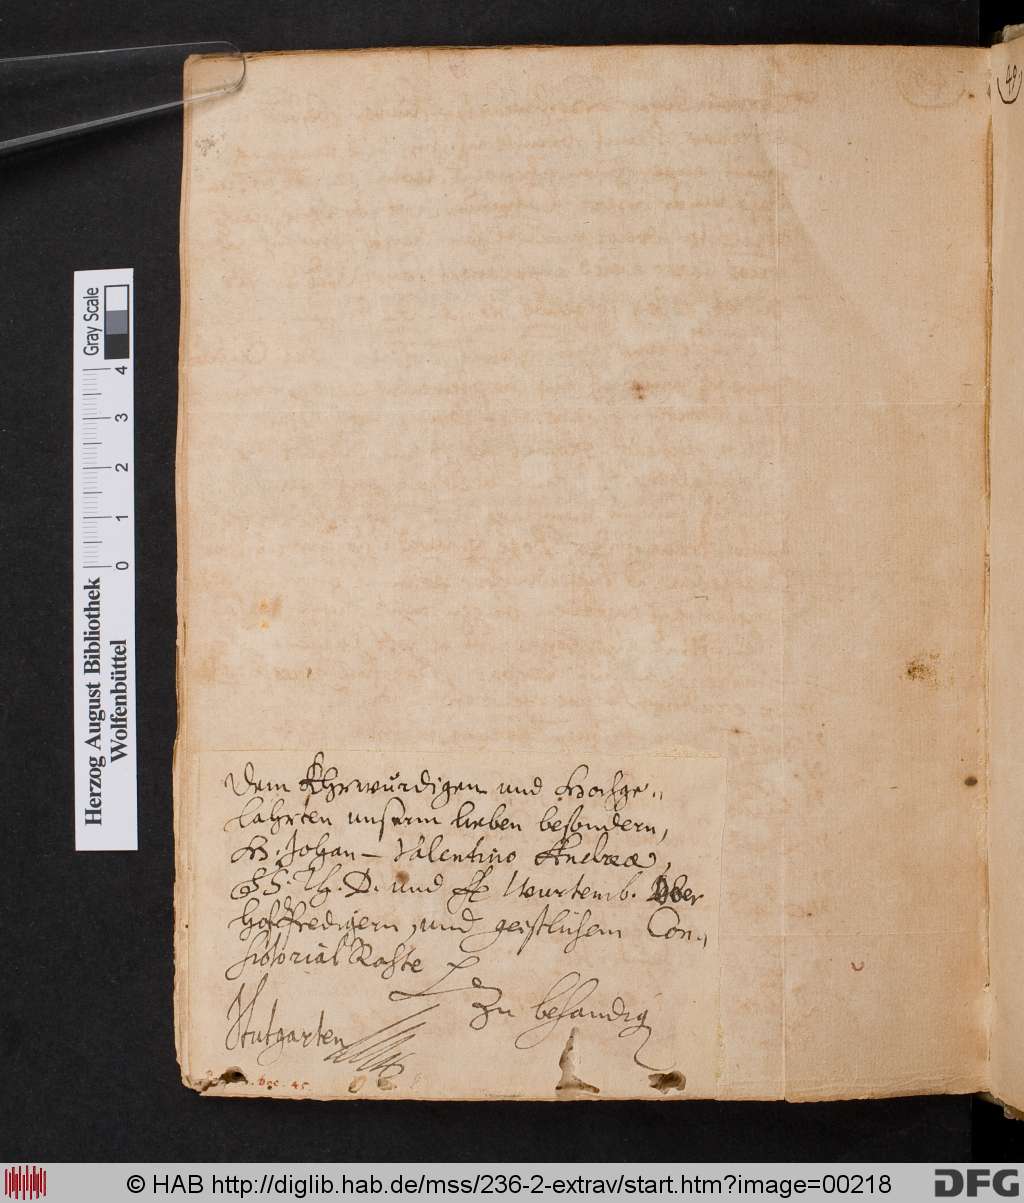 49
Dem Ehrwürdigen und Hochge„
Lahrten unserm lieben besondern,
H. Johan – Valentino Andreæ,
SS. Th. D. und ff Wurtemb. Ober
HoffPredigern, und geistlichem Con„
sistorial Rahte
zu behandig
Stutgarten
Dec. 45.
Gray Scale
4 3 2 1 0
Herzog August Bibliothek
Wolfenbüttel
© HAB http://diglib.hab.de/mss/236-2-extrav/start.htm?image=00218
DFG